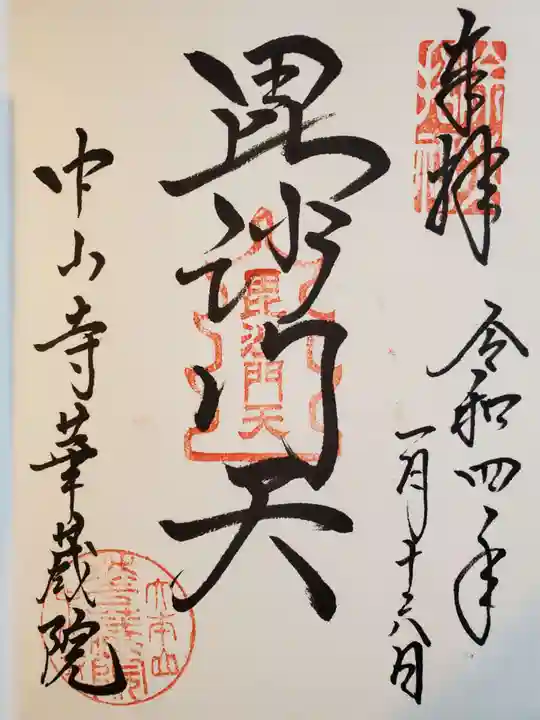 奉拝
令和四年
一月十六日
毘沙門天
毘沙門天
中山寺華蔵院
大本山